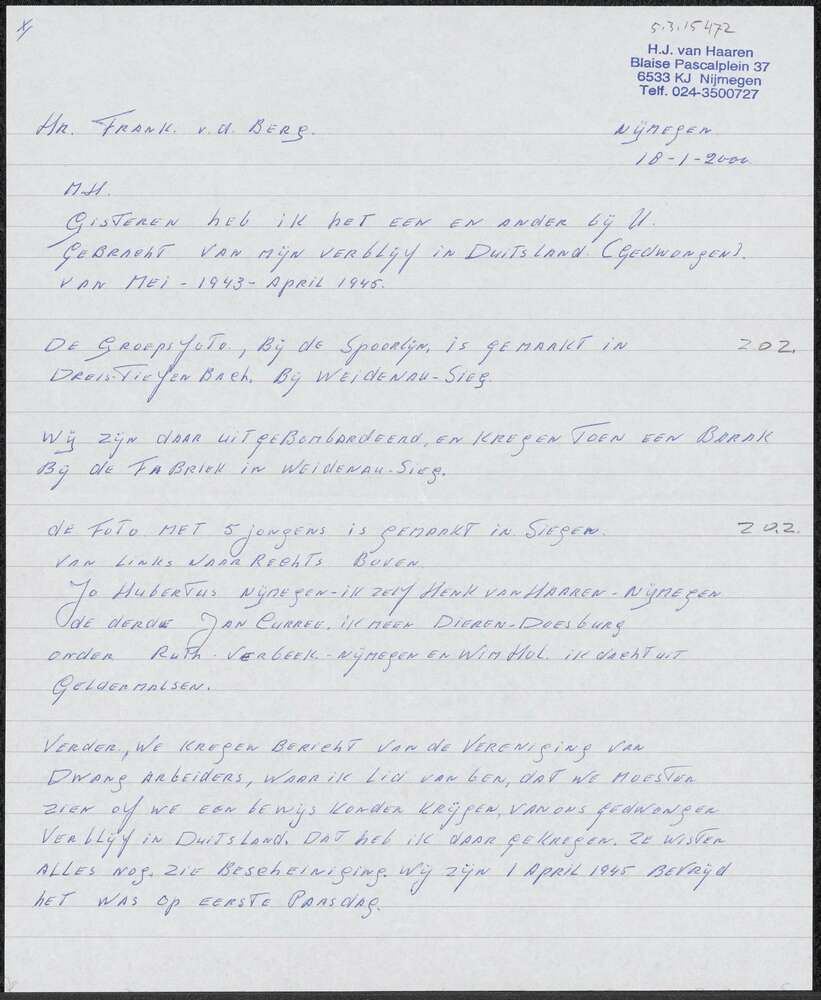 5.3.15472
H.J. van Haaren
Blaise Pascalplein 37
6533 KJ Nijmegen
Telf. 024-3500727
Hr. Frank. v.d. Berg.
Nijmegen
18-1-2000
M.H.
Gisteren heb ik het een en ander bij U.
Gebracht van mijn verblijf in Duitsland. (Gedwongen).
van Mei - 1943 - April 1945.
De Groepsfoto, Bij de Spoorlijn, is gemaakt in
202.
Dreis-Tiefenbach. Bij Weidenau-Sieg.
Wij zijn daar uitgebombardeerd, en kregen toen een Barak
Bij de Fabriek in Weidenau-Sieg.
de Foto met 5 jongens is gemaakt in Siegen.
202.
van links naar Rechts Boven
Jo Hubertus Nijmegen - ik zelf Henk van Haaren - Nijmegen
de derde Jan Curree. ik meen Dieren-Doesburg
onder Ruth. Verbeek - Nijmegen en Wim Hol. ik dacht uit
Geldermalsen.
Verder, we kregen Bericht van de Vereniging van
Dwang Arbeiders, waar ik Lid van ben, dat we moesten
zien of we een bewijs konden krijgen, van ons gedwongen
Verblijf in Duitsland. Dat heb ik daar gekregen. Ze wisten
Alles nog. Zie Bescheiniging. Wij zijn 1 April 1945 Bevrijd
het was op eerste Paasdag.